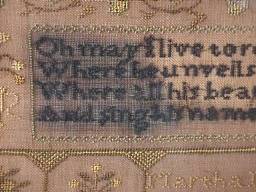 Oh may I live to
Where he unveils
Where all his
And sing his name
Martha